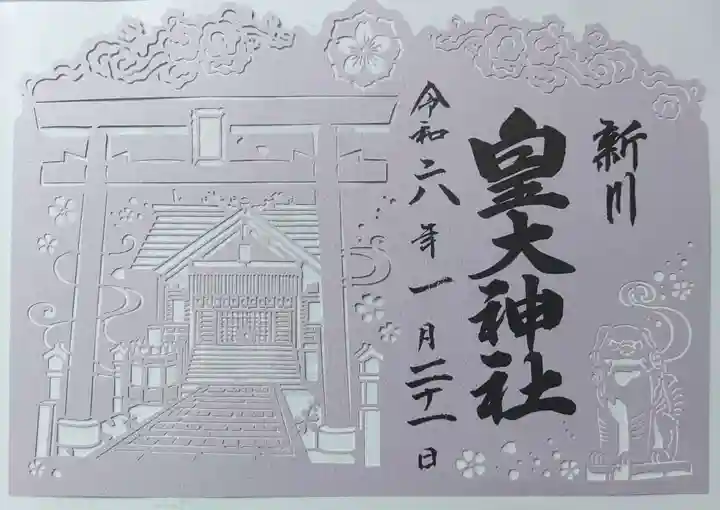 新川
皇大神社
令和六年一月二十一日